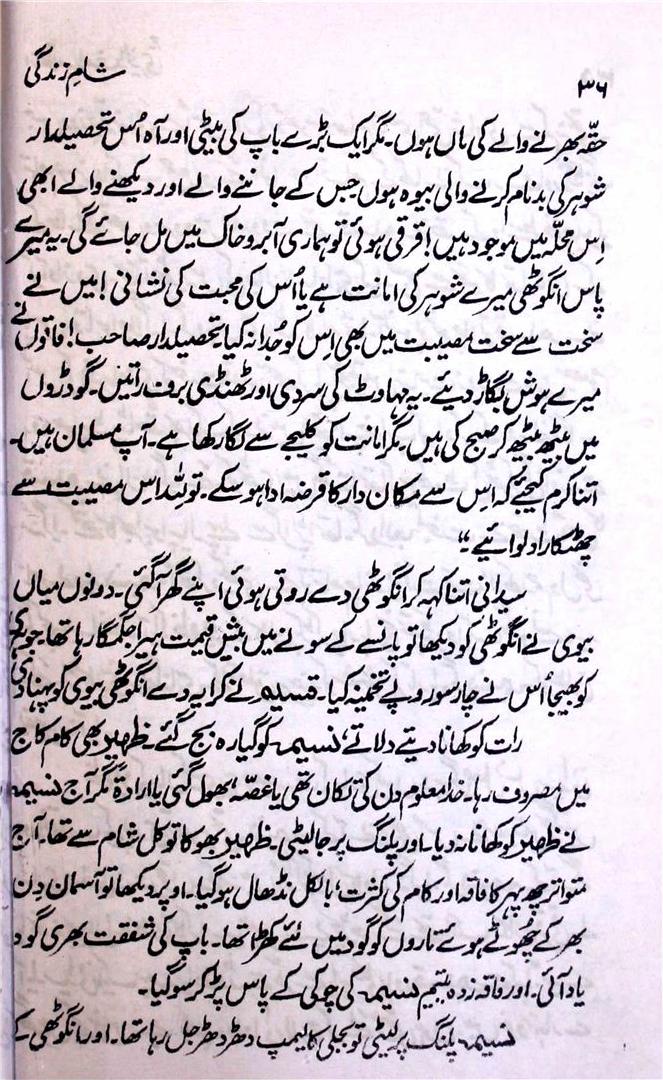 ۳۶ شامِ زندگی
حقّہ بھرنے والے کی ماں ہوں۔ مگر ایک بڑے باپ کی بیٹی اور آہ اُس تحصیلدار
شوہر کی بدنام کرنے والی بیوہ ہوں جس کے جاننے والے اور دیکھنے والے ابھی
اِس محلّہ میں موجود ہیں! قرقی ہوئی تو ہماری آبرو خاک میں مل جائے گی۔ یہ میرے
پاس انگوٹھی میرے شوہر کی امانت ہے یا اُس کی محبت کی نشانی! میں نے
سخت سے سخت مصیبت میں بھی اِس کو جُدا نہ کیا۔ تحصیلدار صاحب! فاقوں نے
میرے ہوش بگاڑ دیئے۔ یہ مہاوٹ کی سردی اور ٹھنڈی برف راتیں۔ گودڑوں
میں بیٹھ بیٹھ کر صبح کی ہیں۔ مگر امانت کو کلیجے سے لگا رکھا ہے۔ آپ مسلمان ہیں۔
اتنا کرم کیجئے کہ اِس سے مکان دار کا قرضہ ادا ہو سکے۔ تو لِلّٰہ اِس مصیبت سے
چھٹکارا دلوائیے“
سیدانی اتنا کہہ کر انگوٹھی دے روتی ہوئی اپنے گھر آگئی۔ دونوں میاں
بیوی نے انگوٹھی کو دیکھا تو پانسے کے سونے میں بیش قیمت ہیرا جگمگا رہا تھا۔ جوہری
کو بھیجا اُس نے چار سو روپے تخمینہ کیا۔ قسیم نے کرایہ دے انگوٹھی بیوی کو پہنا دی
رات کو کھانا دیتے دلاتے، نسیمہ کو گیارہ بج گئے۔ ظہیر بھی کام کاج
میں مصروف رہا۔ خدا معلوم دن کی تکان تھی یا غصّہ، بھول گئی یا ارادۃً مگر آج نسیمہ
نے ظہیر کو کھانا نہ دیا۔ اور پلنگ پر جا لیٹی۔ ظہیر بھوکا تو کل شام سے تھا۔ آج
متواتر چھ پہر کا فاقہ اور کام کی کثرت، بالکل نڈھال ہوگیا۔ اوپر دیکھا تو آسمان دن
بھر کے چھوٹے ہوئے تاروں کو گود میں لئے کھڑا تھا۔ باپ کی شفقت بھری گود
یاد آئی۔ اور فاقہ زدہ یتیم نسیمہ کی چوکی کے پاس پڑ کر سو گیا۔
نسیمہ پلنگ پر لیٹی تو بجلی کا لیمپ دھڑ دھڑ جل رہا تھا۔ اور انگوٹھی کے